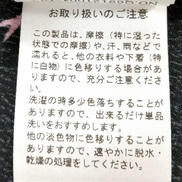 お取り扱いのご注意
この製品は、摩擦(特に湿った
状態での摩擦)や、汗、雨などで
濡れると、他の衣料や下着(特
に白物)に色移りする場合があ
りますので、充分ご注意くださ
い。
洗濯の時多少色落ちすることが
ありますので、出来るだけ単品
洗いをおすすめします。
他の淡色物に色移りすることが
ありますので、速やかに脱水・
乾燥の処理をしてください。